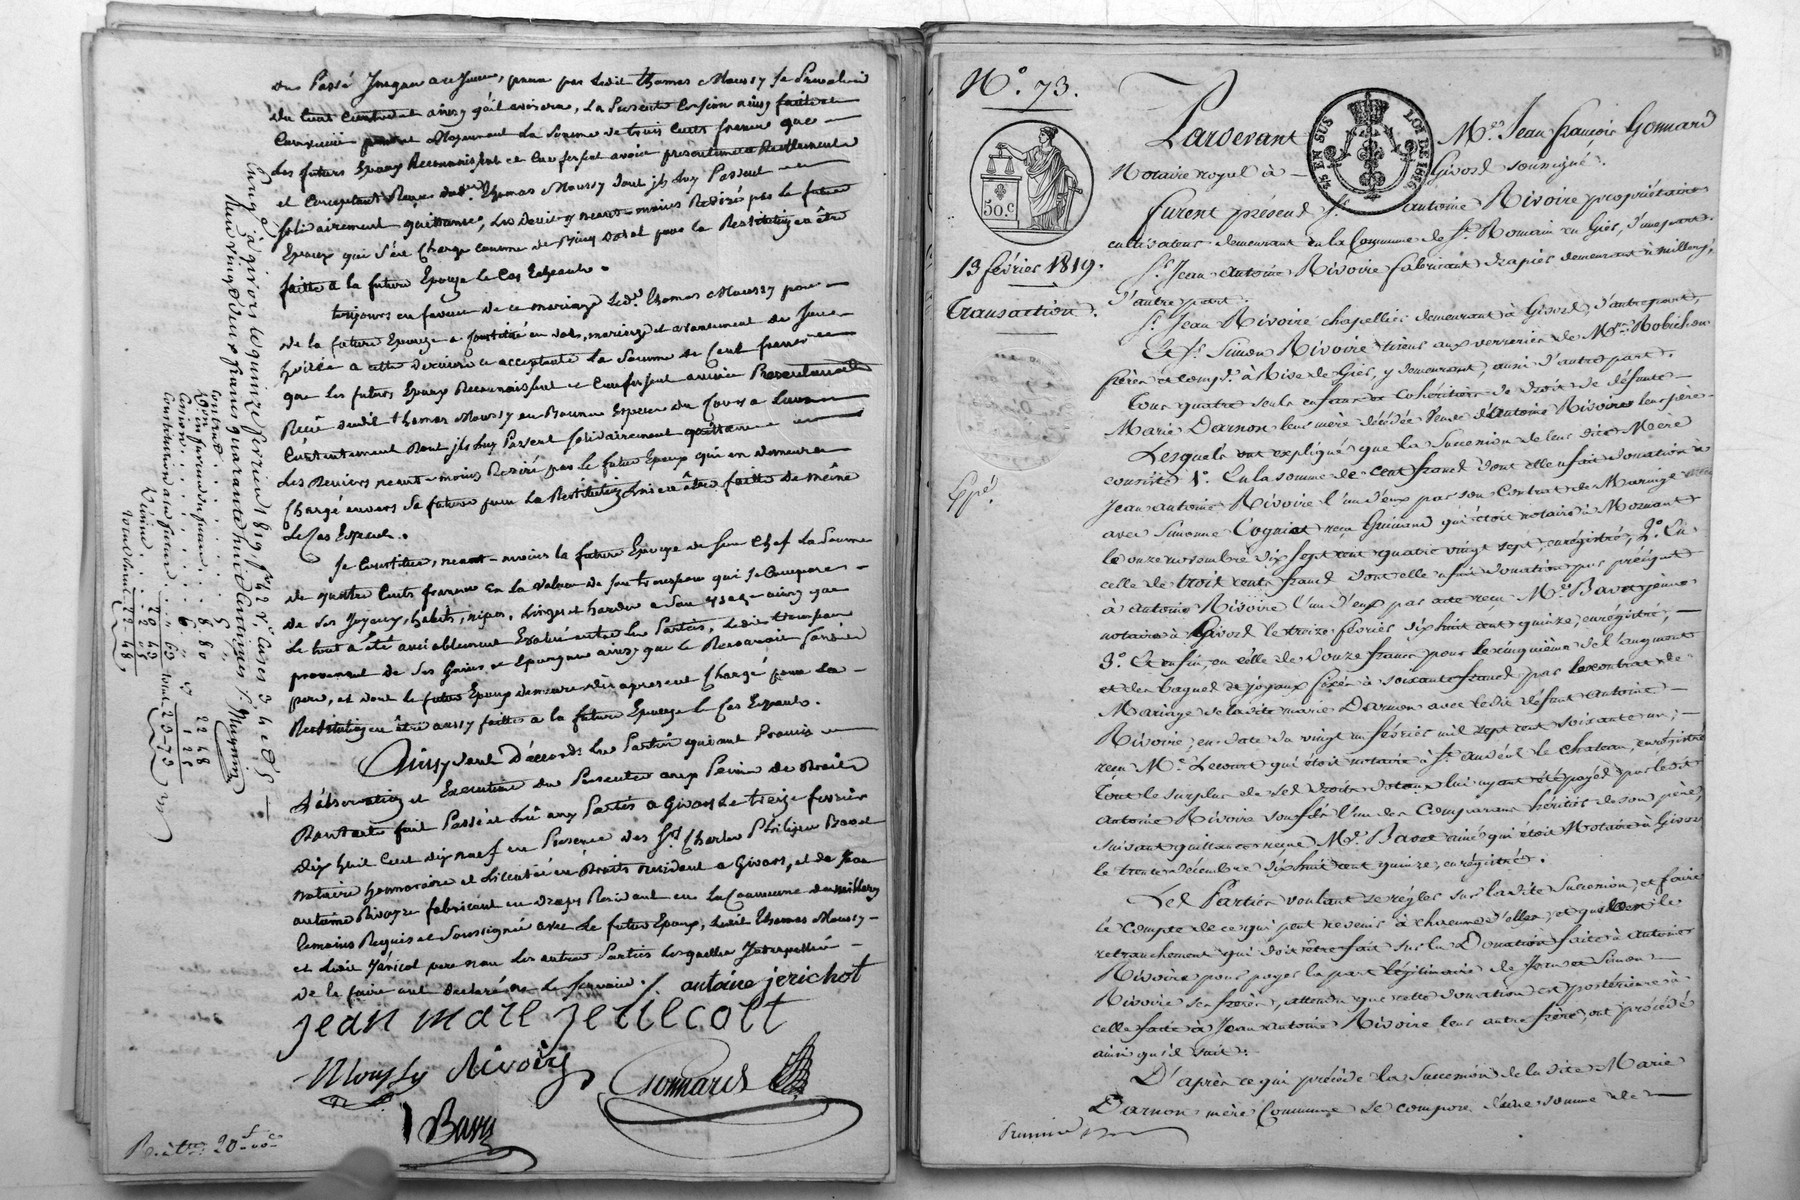 du Passé Jusques a ce Jour, pour par ledit thomas Moussy se Prevaloir
du tout ainsy qu'il avisera, La Presente Cession ainsy faitte et
Convenue moyennant la Somme de trois Cents francs que
Les futurs Epoux Reconnaissent et Confessent avoir presentement Reellement
et Comptant Reçue dudit Thomas Moussy dont ils luy Passent
solidairement quittance, Les deniers neant-moins Retirés par le futur
Epoux qui s'est Chargé comme de Bien Dotal pour la Restitution en être
faitte a la future Epouze le Cas Echeant.
toujours en faveur de ce mariage ledt. Thomas Moussy
de la future Epouze a Constitué en dot, mariage et avancement de
a cette derniere ce acceptante la Somme de Cent francs
que les futurs Epoux Reconnaissent et Confessent avoir Presentement
Reçue dudit Thomas Moussy en Bonnes Especes du Cours a Leur
Contentement dont ils luy Passent solidairement quittance
Les deniers neant-moins Retiré par le futur Epoux qui en demeure
Chargé envers sa future pour La Restitution en être faitte de même
Le Cas Echeant.
Se Constitue, neant-moins la future Epouze de Son Chef La Somme
de quattre Cents francs En la Valeur de son trousseau qui se Compose
de Ses Joyaux, habits, nipes, Linges et hardes a Son Usage ainsy que
Le tout a été amiablement Evalué entre les Parties, Ledit trousseau
provenant de Ses Gains et Epargnes ainsy que le Reconnait
pere, et dont le futur Epoux demeure dès apresent Chargé pour la
Restitution en être aussy faitte a la future Epouze le Cas Echeant.
Ainsy sont D'accords les Parties qui ont Promis
L'observation et Execution des Presentes aux Peines de Droit
Dont acte fait Passé et Lû aux Parties a Givors Le treize fevrier
Dix huit Cent dix neuf en Presence des Srs. Charles Philipe Bavet
notaire honnoraire et Licentié en Droits resident a Givors, et de Jean
antoine Rivoire fabricant en draps Resident en la Commune de millery
temoins Requis et Soussignés avec Le futur Epoux, Ledit Thomas Moussy
et Ledit Jéricot pere non les autres Parties Lesquelles Interpellées
de le faire ont declaré ne le Savoir. antoine jerichot
jean marc jericott
Moussy Rivoire Gonnard
Bavet
Enregé. à givors le quinze fevrier 1819
Reçu vingt deux francs quarante huit centimes
Contrat
Cession
Constitution au futur
Décime
Total
N.º 73.
50.C
13 février 1819.
Transaction.
Expé.
TIMBRE EN SUS
LOI DE 1816
Pardevant Me. Jean françois Gonnard
Notaire royal à Givors soussigné.
Furent présens Sr. antoine Rivoire propriétaire
cultivateur demeurant en la Commune de St. Romain en Giès, d'une part.
Sr. Jean Antoine Rivoire fabricant drapier demeurant à millery,
d'autre part.
Sr. Jean Rivoire chapellier demeurant à Givors, d'autre part,
Et Sr. Simon Rivoire tireur aux verreries de Mrs. Robichon
frères et compe. à Rive de Giès, y demeurant, aussi d'autre part.
Tous quatre seuls enfans et cohéritiers de droit de défunte
Marie Darnon leur mère décédée veuve d'Antoine Rivoire leur père.
Lesquels ont expliqué que la Succession de leur dite Mère
consiste 1.º En la somme de cent francs dont elle a fait donation à
Jean Antoine Rivoire l'un d'eux par son Contrat de Mariage
avec Simonne Cogniet reçu Guinand qui étoit notaire à Mornant
le onze novembre dix sept cent quatre vingt sept, enregistré; 2.º En
celle de trois cents francs dont elle a fait donation par préciput
à antoine Rivoire l'un d'eux par acte reçu Me. Bavet jeune
notaire à Givors le treize février dix huit cent quinze, enregistré;
3.º Et enfin, en celle de douze francs pour le cinquième de l'augment
et des bagues et joyaux fixés à soixante francs par le contrat de
Mariage de la dite marie Darnon avec le dit défunt Antoine
Rivoire, en date du vingt un février mil sept cent soixante un;
reçu Me. Lecourt qui étoit notaire à St. andéol le chateau, enregistré
Tout le surplus de ses droits dotaux lui ayant été payés par ledit
Antoine Rivoire son fils l'un des Comparans héritier de son père,
suivant quittance reçue Me. Bavet ainé qui étoit Notaire à Givors
le trente décembre dix huit cent quinze, enregistrée.
Les Parties voulant se régler sur la dite Succession, et faire
le compte de ce qui peut revenir à chacune d'elles, et quel est le
retranchement qui doit être fait sur la Donation faite à Antoine
Rivoire pour payer la part légitimaire de Jean et Simon
Rivoire ses frères, attendu que cette donation est postérieure à
celle faite à Jean Antoine Rivoire leur autre frère, ont procédé
ainsi qu'il suit.
D'après ce qui précède la Succession de la dite Marie
Darnon mère Commune se compose d'une somme de